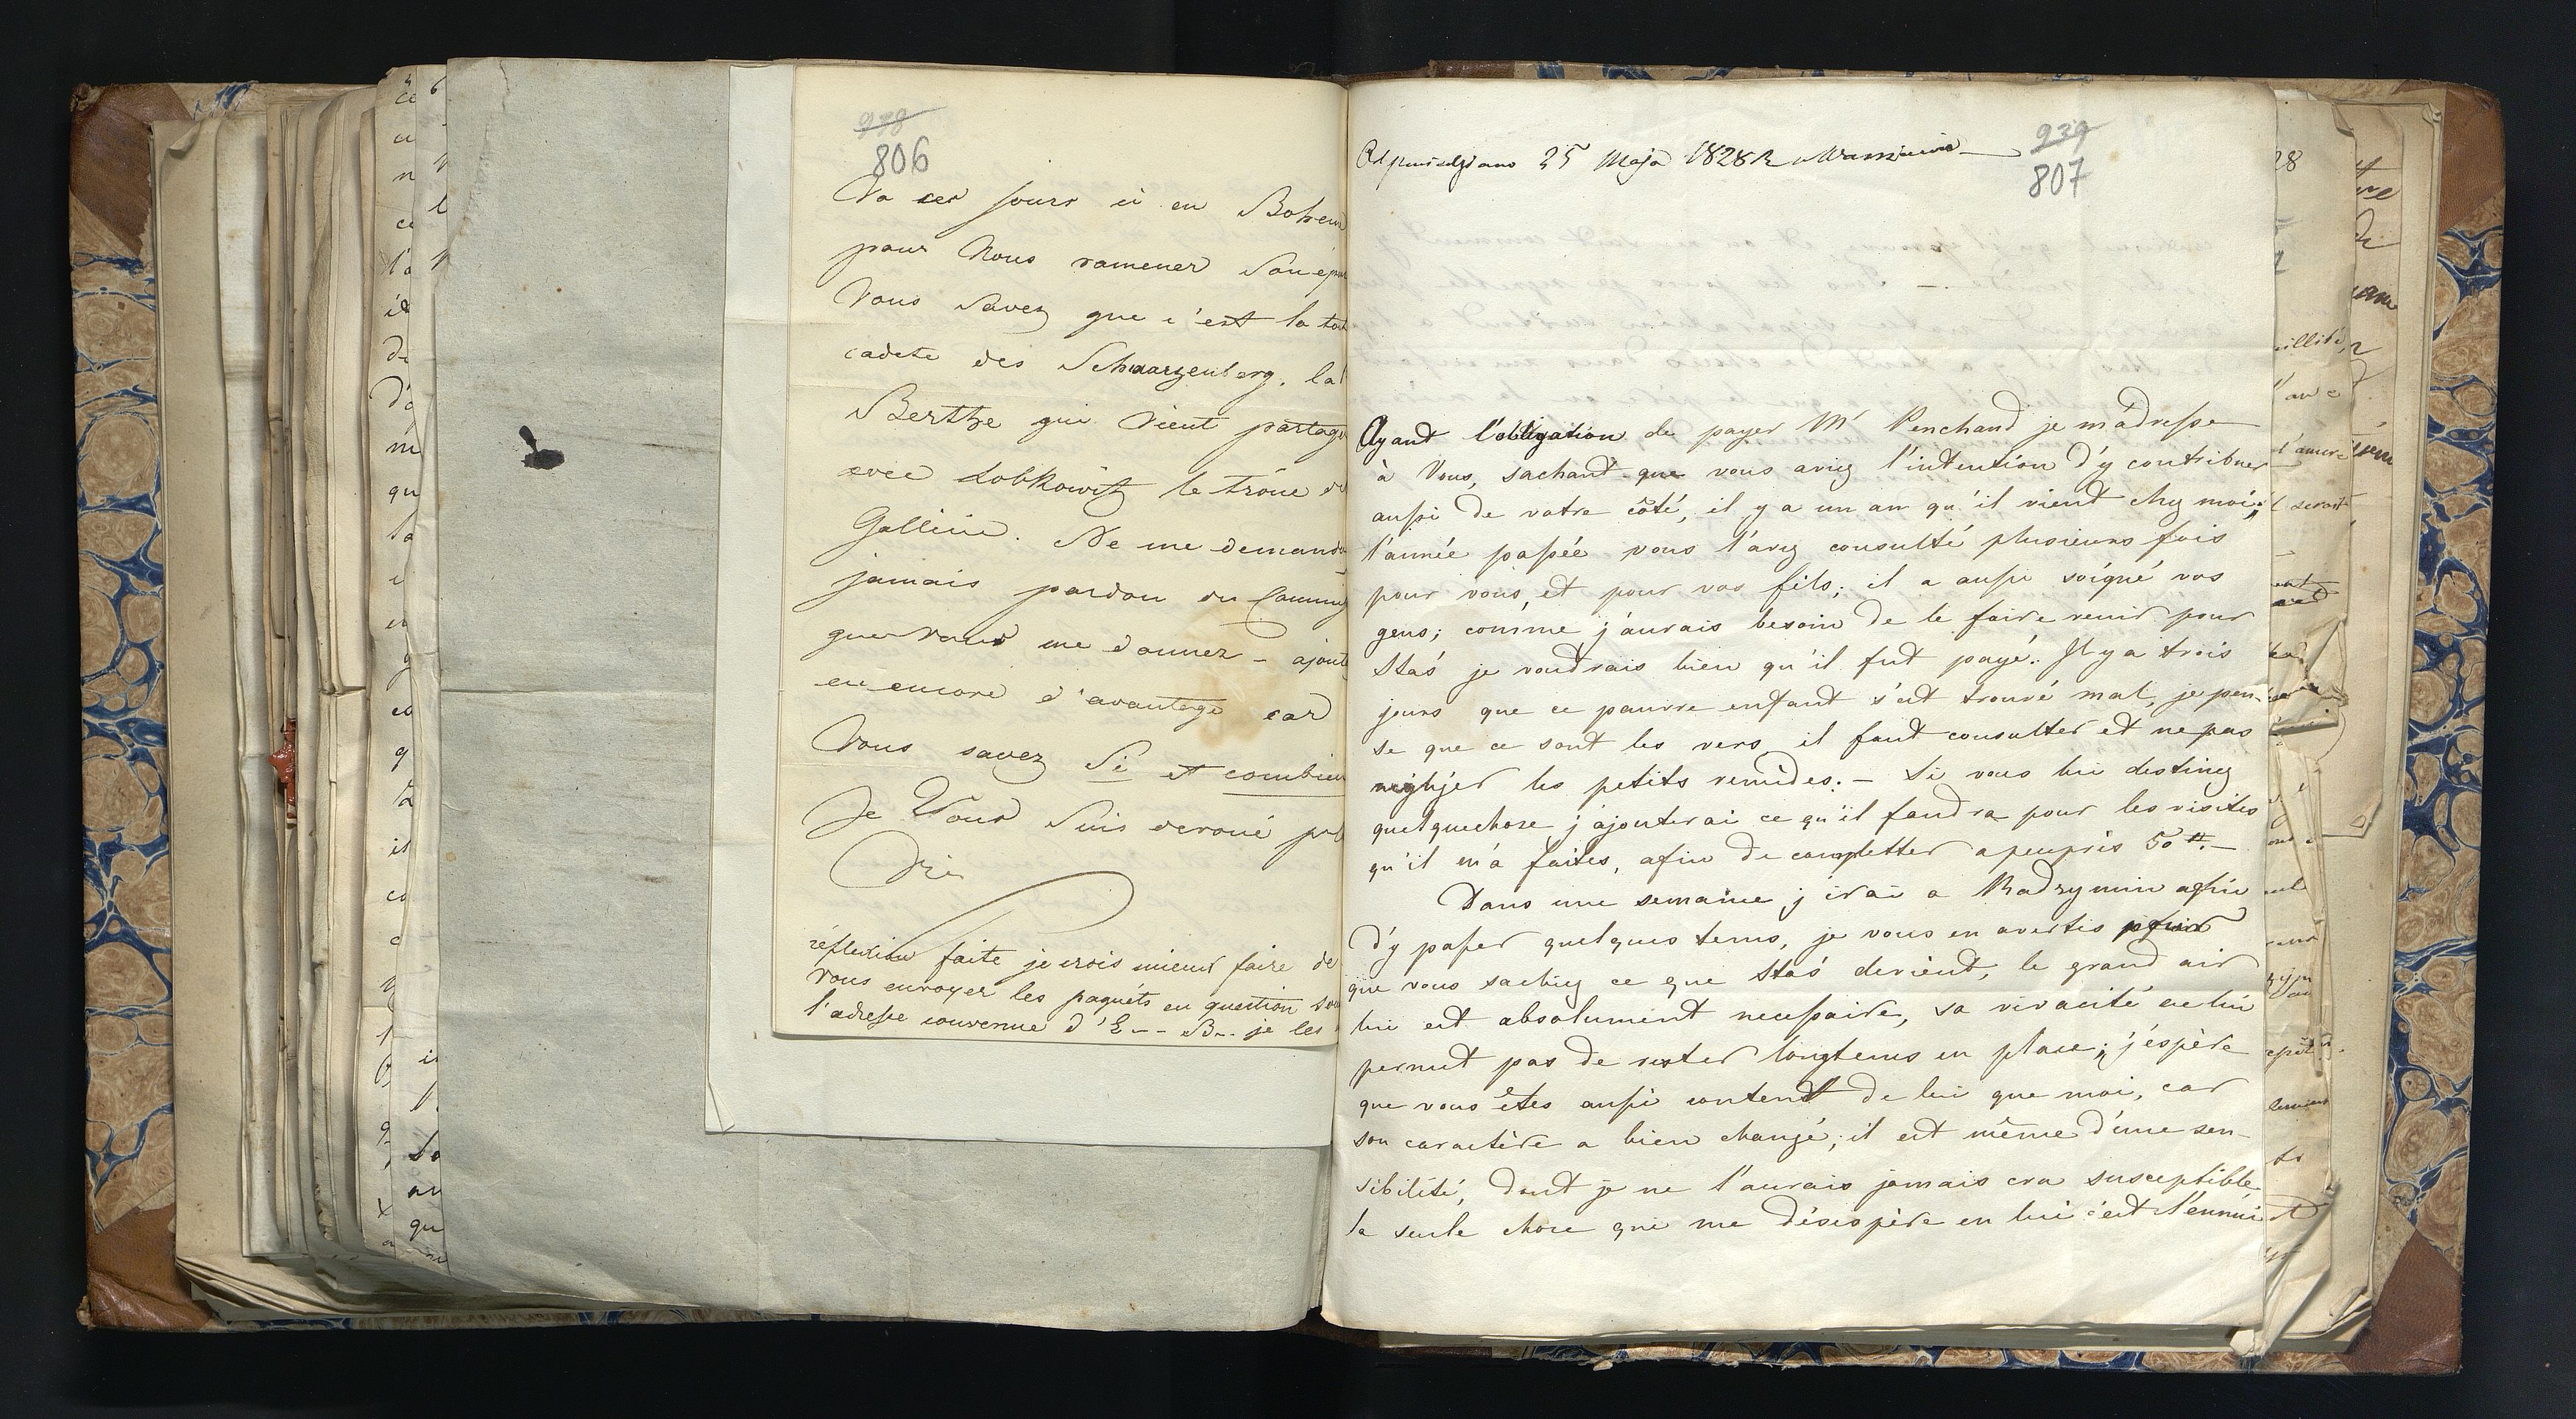 938
806
Va ces jours ci en Bohem
pour nous ramener son épou
Vous savez que c'est la tou
cadete des Schwarzenberg, la
Berthe qui vient partage
avec Lobkowitz le trône de
Gallicie. Ne me demand
jamais pardon des Commis
que vous me donnez - ajout
en encore d'avantage car
Vous savez Si et combien
Je Vous suis devoué pr
réflexion faite je crois mieux faire de
vous envoyer les paquéts en question sou
l'adresse convenue d'E-- B-- je les
25 Maja 1828 R w Warszawie
939
807
Ayant l'obligation de payer Mr Penchand je m'adresse
à Vous, sachant que vous aviez l'intention d'y contribuer
aussi de votre côté, il y a un an qu'il vient chez moi;
l'année passée vous l'avez consulté plusieurs fois
pour vous, et pour vos fils; il a aussi soigné vos
gens; comme j'aurais besoin de le faire venir pour
Staś je voudrais bien qu'il fut payé. Il y a trois
jours que ce pauvre enfant s'est trouvé mal, je pen-
se que ce sont les vers, il faut consulter et ne pas
négliger les petits remèdes. - Si vous lui destinez
quelquechose j'ajouterai ce qu'il faudra pour les visites
qu'il m'a faites, afin de completter apeuprès 50 #. -
Dans une semaine j'irai a Radzymin afin
d'y passer quelques tems, je vous en avertis pour
que vous sachiez ce que Staś devient, le grand air
lui est absolument necessaire, sa vivacité ne lui
permet pas de rester longtems en place; j'éspère
que vous êtes aussi content de lui que moi, car
son caractère a bien changé; il est même d'une sen-
sibilité, dont je ne l'aurais jamais cru susceptible
la seule chose qui me désespère en lui c'est l'ennui